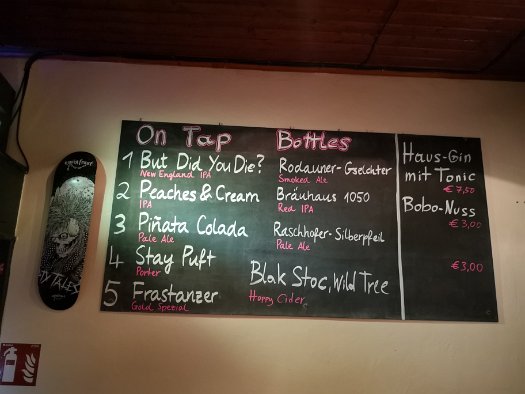 On Tap
1 But Did You Die?
New England IPA
2 Peaches & Cream
IPA
3 Piñata Colada
Pale Ale
4 Stay Puft
Porter
5 Frastanzer
Gold Spezial
Bottles
Rodauner-Gselchter
Smoked Ale
Bräuhaus 1050
Red IPA
Raschhofer-Silberpfeil
Pale Ale
Blak Stoc, Wild Tree
Hoppy Cider
Haus-Gin
mit Tonic
€ 7,50
Bobo-Nuss
€ 3,00
€ 3,00